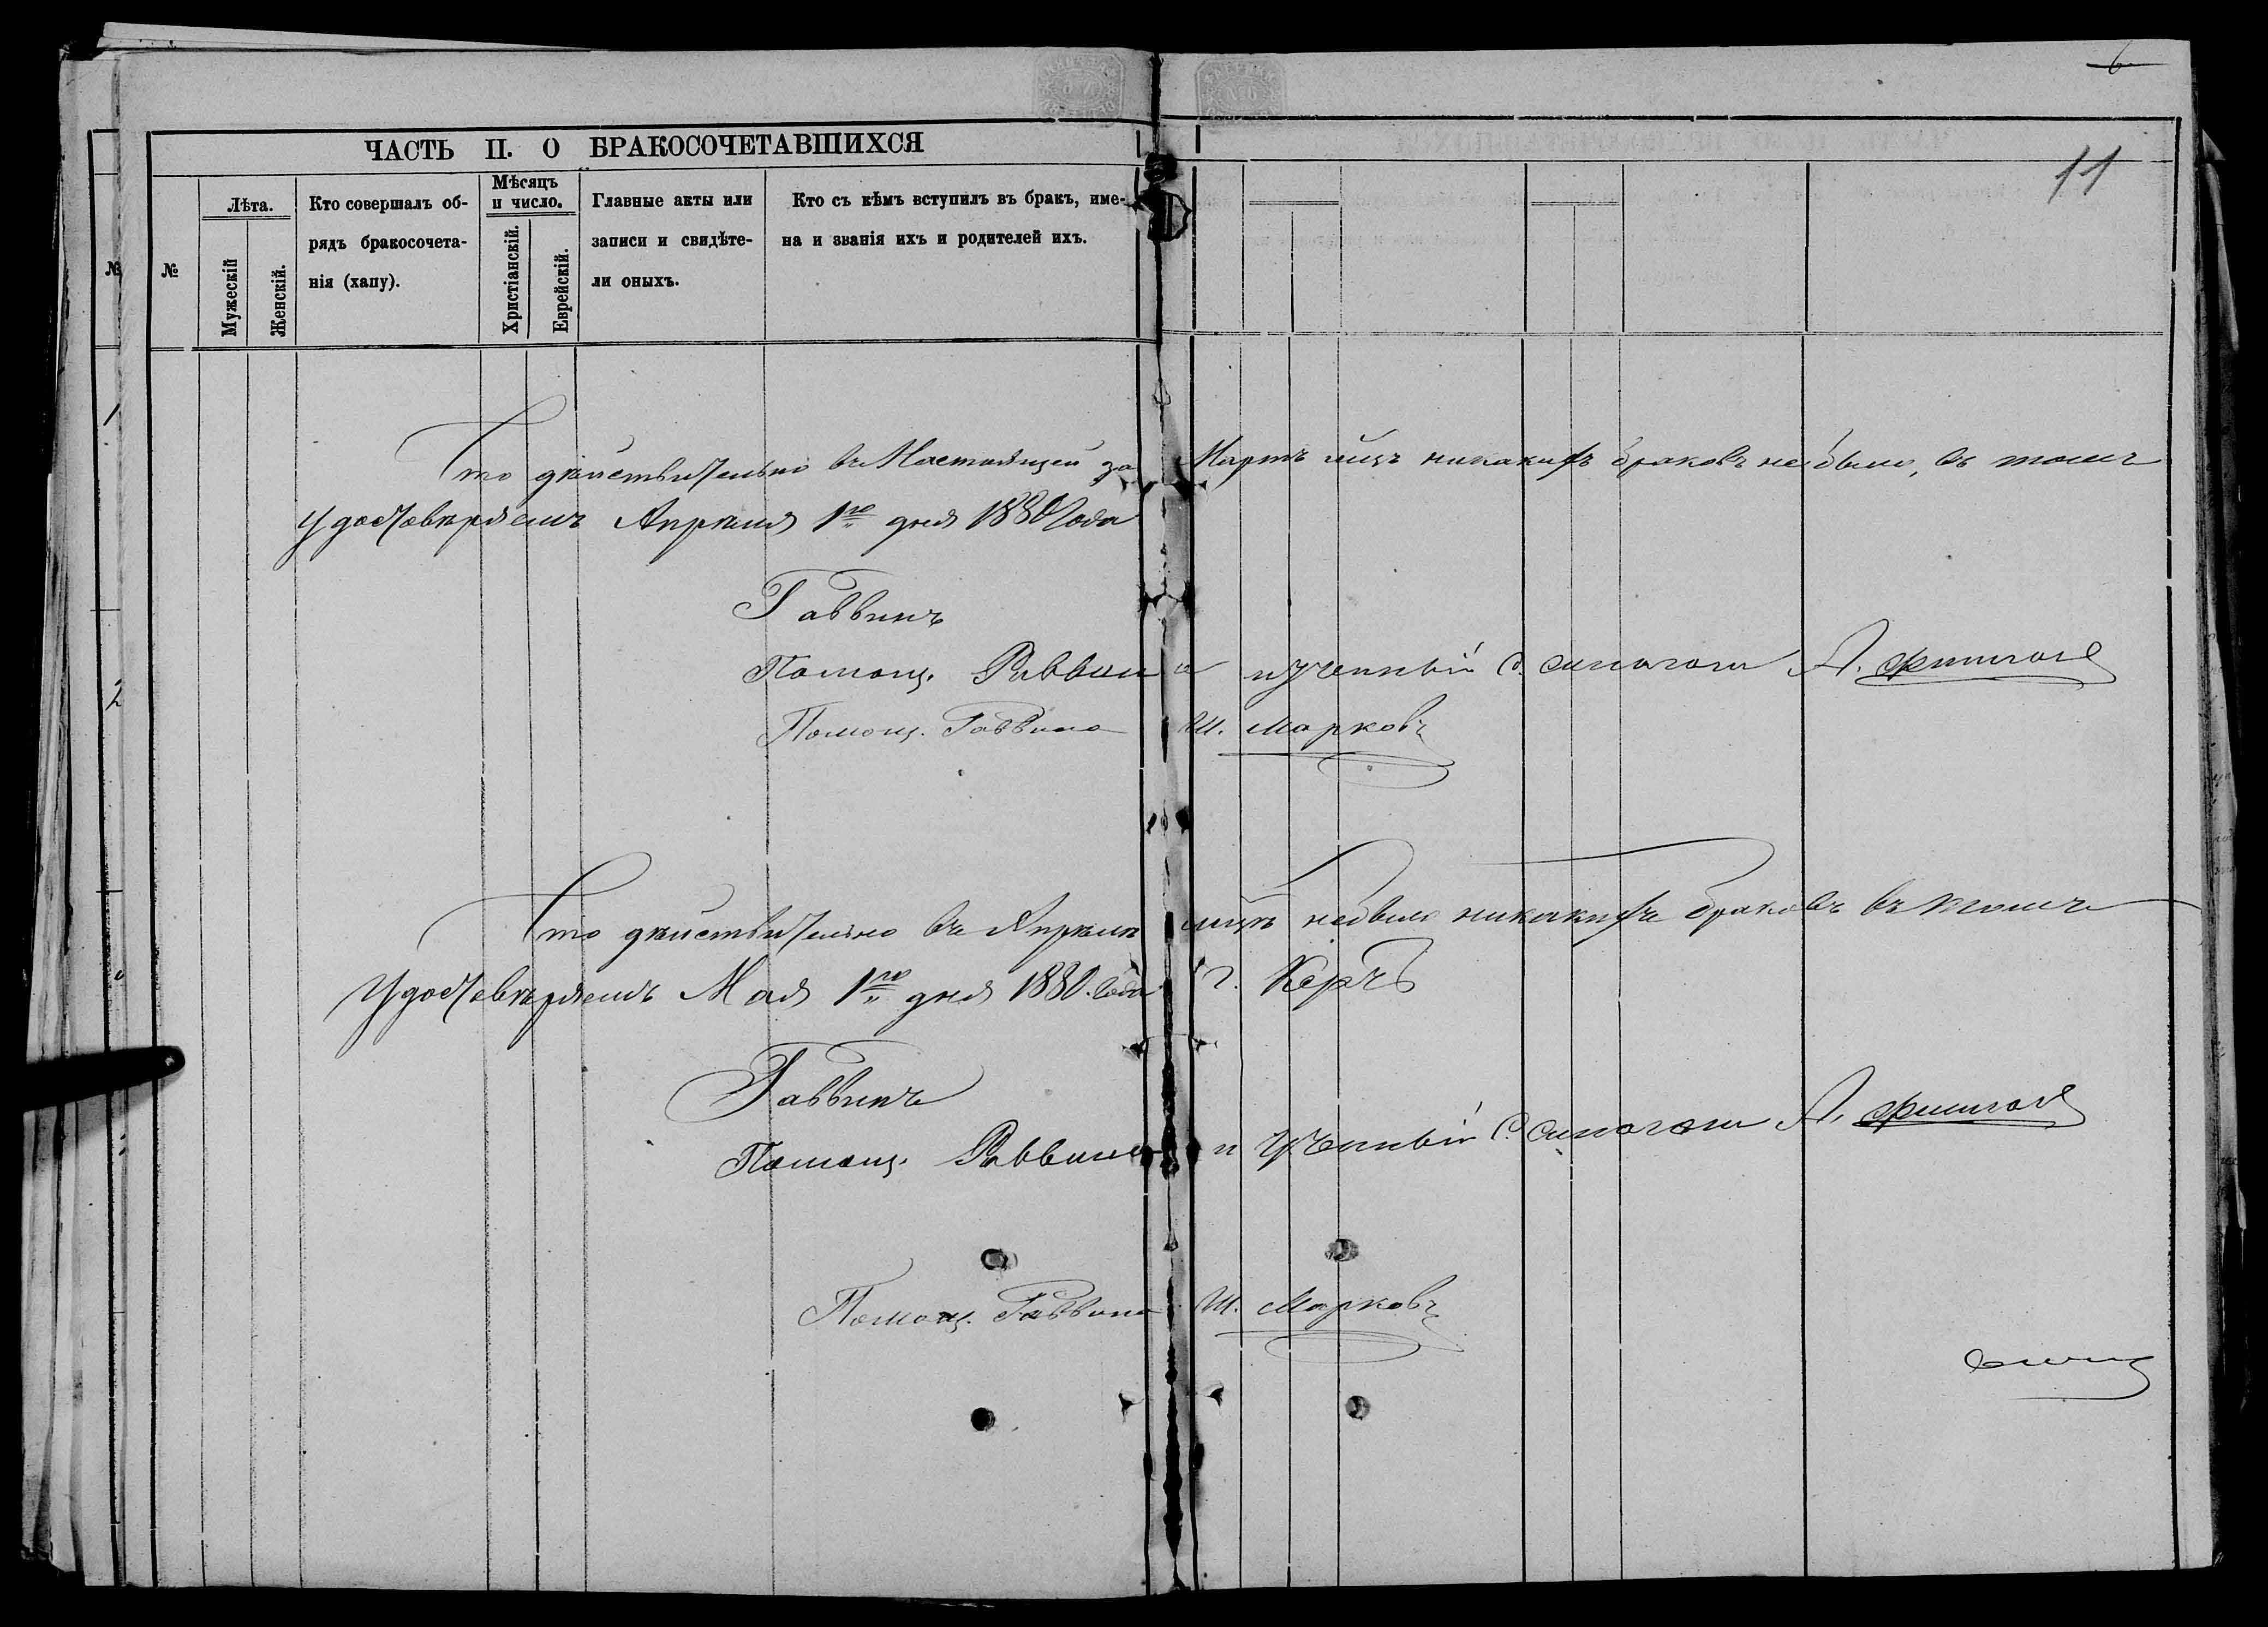 6
11
ЧАСТЬ II. О БРАКОСОЧЕТАВШИХСЯ
№
№
Лѣта.
Мужескій
Женскій.
Кто совершалъ об-
рядъ бракосочета-
нія (хапу).
Мѣсяцъ
и число.
Христіанскій.
Еврейскій.
Главные акты или
записи и свидѣте-
ли оныхъ.
Кто съ кѣмъ вступилъ въ бракъ, име-
на и званія ихъ и родителей ихъ.
1
2
Что дѣйствительно въ Настоящей за Мартъ мцъ никакихъ браковъ небыло, въ томъ
удостовѣряемъ Апрѣля 1го дня 1880 года
Раввинъ
Помощ. Раввина и ученный С. синагоги
Помощ. Раввина Ш. Марковъ
Что дѣйствительно въ Апрѣлѣ мцѣ небыло никакихъ браковъ въ томъ
удостовѣряемъ Мая 1го дня 1880. года г. Керчь
Раввинъ
Помощ. Раввина и Ученный С. синагоги
Помощ. Раввина Ш. Марковъ